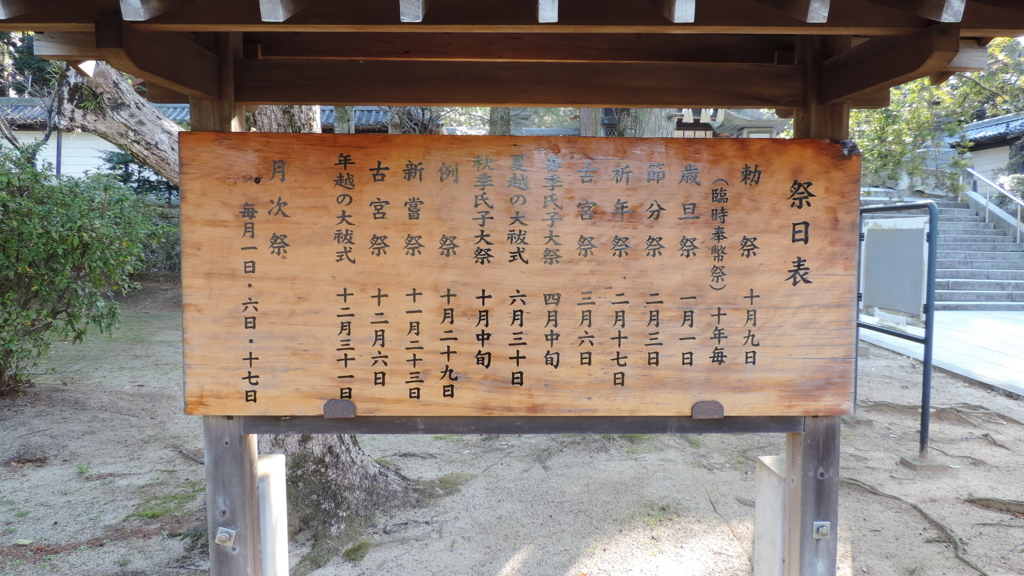 祭日表
勅祭 十月九日
（臨時奉幣祭） 十年毎
歳旦祭 一月一日
節分祭 二月三日
祈年祭 二月十七日
古宮祭 三月六日
春季氏子大祭 四月中旬
夏越の大祓式 六月三十日
秋季氏子大祭 十月中旬
例祭 十月二十九日
新嘗祭 十一月二十三日
古宮祭 十二月六日
年越の大祓式 十二月三十一日
月次祭
毎月一日・六日・十七日